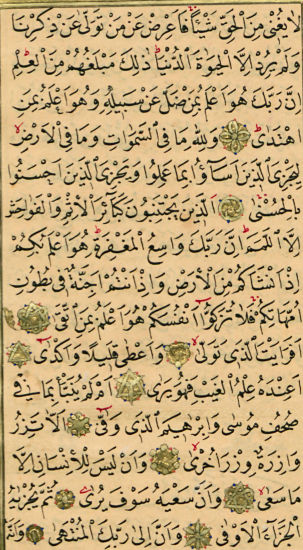 لَا يُغْنِى مِنَ الْحَقِّ شَيْئًا فَاَعْرِضْ عَنْ مَنْ تَوَلّٰى عَنْ ذِكْرِنَا
وَلَمْ يُرِدْ اِلَّا الْحَيٰوةَ الدُّنْيَا ذٰلِكَ مَبْلَغُهُمْ مِنَ الْعِلْمِ
اِنَّ رَبَّكَ هُوَ اَعْلَمُ بِمَنْ ضَلَّ عَنْ سَبِيلِهِ وَهُوَ اَعْلَمُ بِمَنِ
اهْتَدٰى وَلِلّٰهِ مَا فِى السَّمٰوَاتِ وَمَا فِى الْاَرْضِ
لِيَجْزِىَ الَّذِينَ اَسَاؤُا بِمَا عَمِلُوا وَيَجْزِىَ الَّذِينَ اَحْسَنُوا
بِالْحُسْنٰى اَلَّذِينَ يَجْتَنِبُونَ كَبَائِرَ الْاِثْمِ وَالْفَوَاحِشَ
اِلَّا اللَّمَمَ اِنَّ رَبَّكَ وَاسِعُ الْمَغْفِرَةِ هُوَ اَعْلَمُ بِكُمْ
اِذْ اَنْشَاَكُمْ مِنَ الْاَرْضِ وَاِذْ اَنْتُمْ اَجِنَّةٌ فِى بُطُونِ
اُمَّهَاتِكُمْ فَلَا تُزَكُّوا اَنْفُسَكُمْ هُوَ اَعْلَمُ بِمَنِ اتَّقٰى
اَفَرَاَيْتَ الَّذِى تَوَلّٰى وَاَعْطٰى قَلِيلًا وَاَكْدٰى
اَعِنْدَهُ عِلْمُ الْغَيْبِ فَهُوَ يَرٰى اَمْ لَمْ يُنَبَّأْ بِمَا فِى
صُحُفِ مُوسٰى وَاِبْرٰهِيمَ الَّذِى وَفّٰى اَلَّا تَزِرُ
وَازِرَةٌ وِزْرَ اُخْرٰى وَاَنْ لَيْسَ لِلْاِنْسَانِ اِلَّا
مَا سَعٰى وَاَنَّ سَعْيَهُ سَوْفَ يُرٰى ثُمَّ يُجْزٰيهُ
الْجَزَاءَ الْاَوْفٰى وَاَنَّ اِلٰى رَبِّكَ الْمُنْتَهٰى وَاَنَّهُ